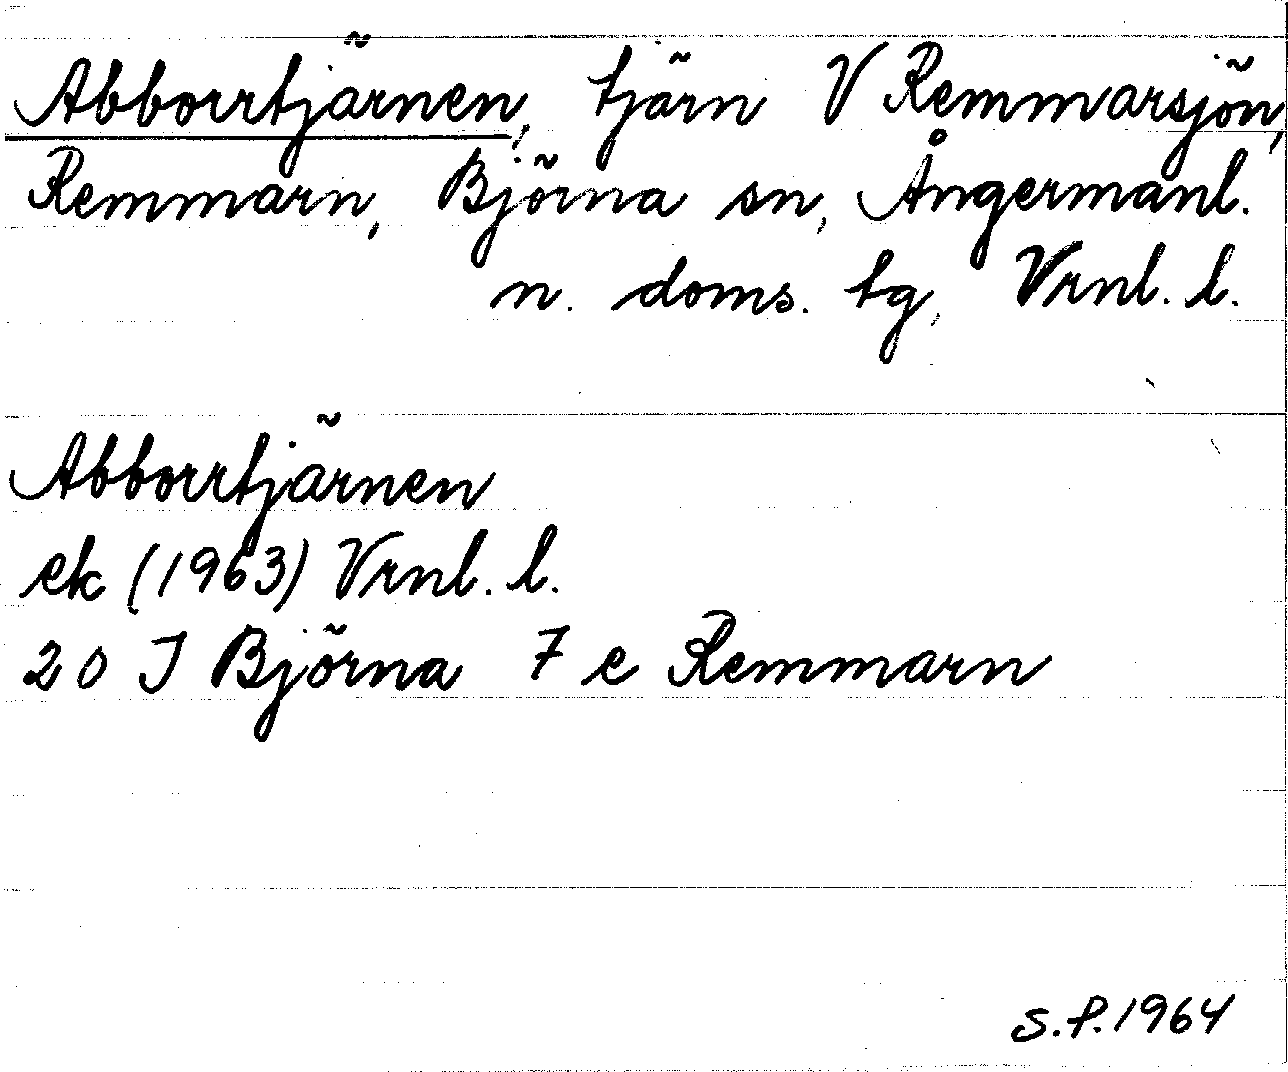 Abborrtjärnen, tjärn V Remmarsjön,
Remmarn, Björna sn, Ångermanl.
n. doms. tg, Vrnl. l.
Abborrtjärnen
ek (1963) Vrnl. l.
20 I Björna 7 e Remmarn
S.P. 1964